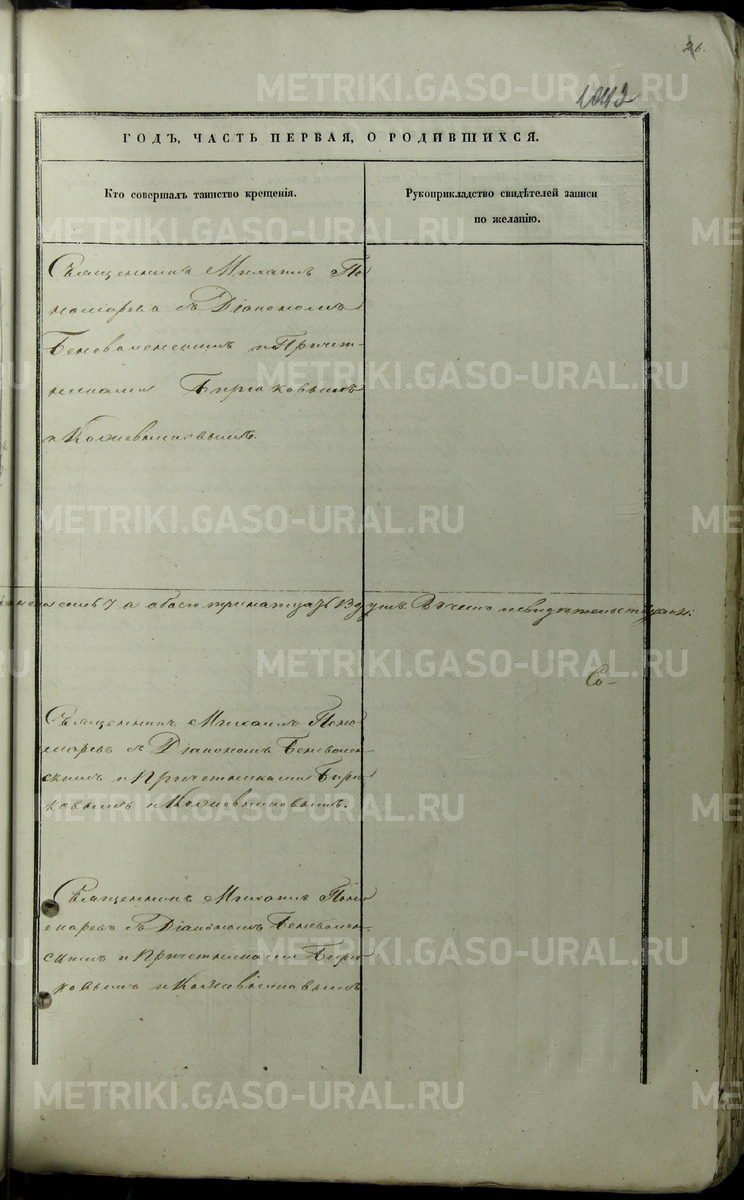 26.
1042
ГОДЪ, ЧАСТЬ ПЕРВАЯ, О РОДИВШИХСЯ.
Кто совершалъ таинство крещенія.
Рукоприкладство свидѣтелей записи
по желанію.
Священникъ Михаилъ По
номаревъ съ Діакономъ
Беневоленскимъ и Причет-
никами Бирюковымъ
и Кожевниковымъ.
7 а обоего тринатцать 13 душъ. Въ чемъ и свидѣтельствуемъ:
Со-
Священникъ Михаилъ Поно
маревъ съ Діакономъ Беневолен
скимъ и Причетниками Бирю
ковымъ и Кожевниковымъ.
Священникъ Михаилъ Поно
маревъ съ Діакономъ Беневолен-
скимъ и Причетниками Бирю
ковымъ и Кожевниковымъ.
METRIKI.GASO-URAL.RU